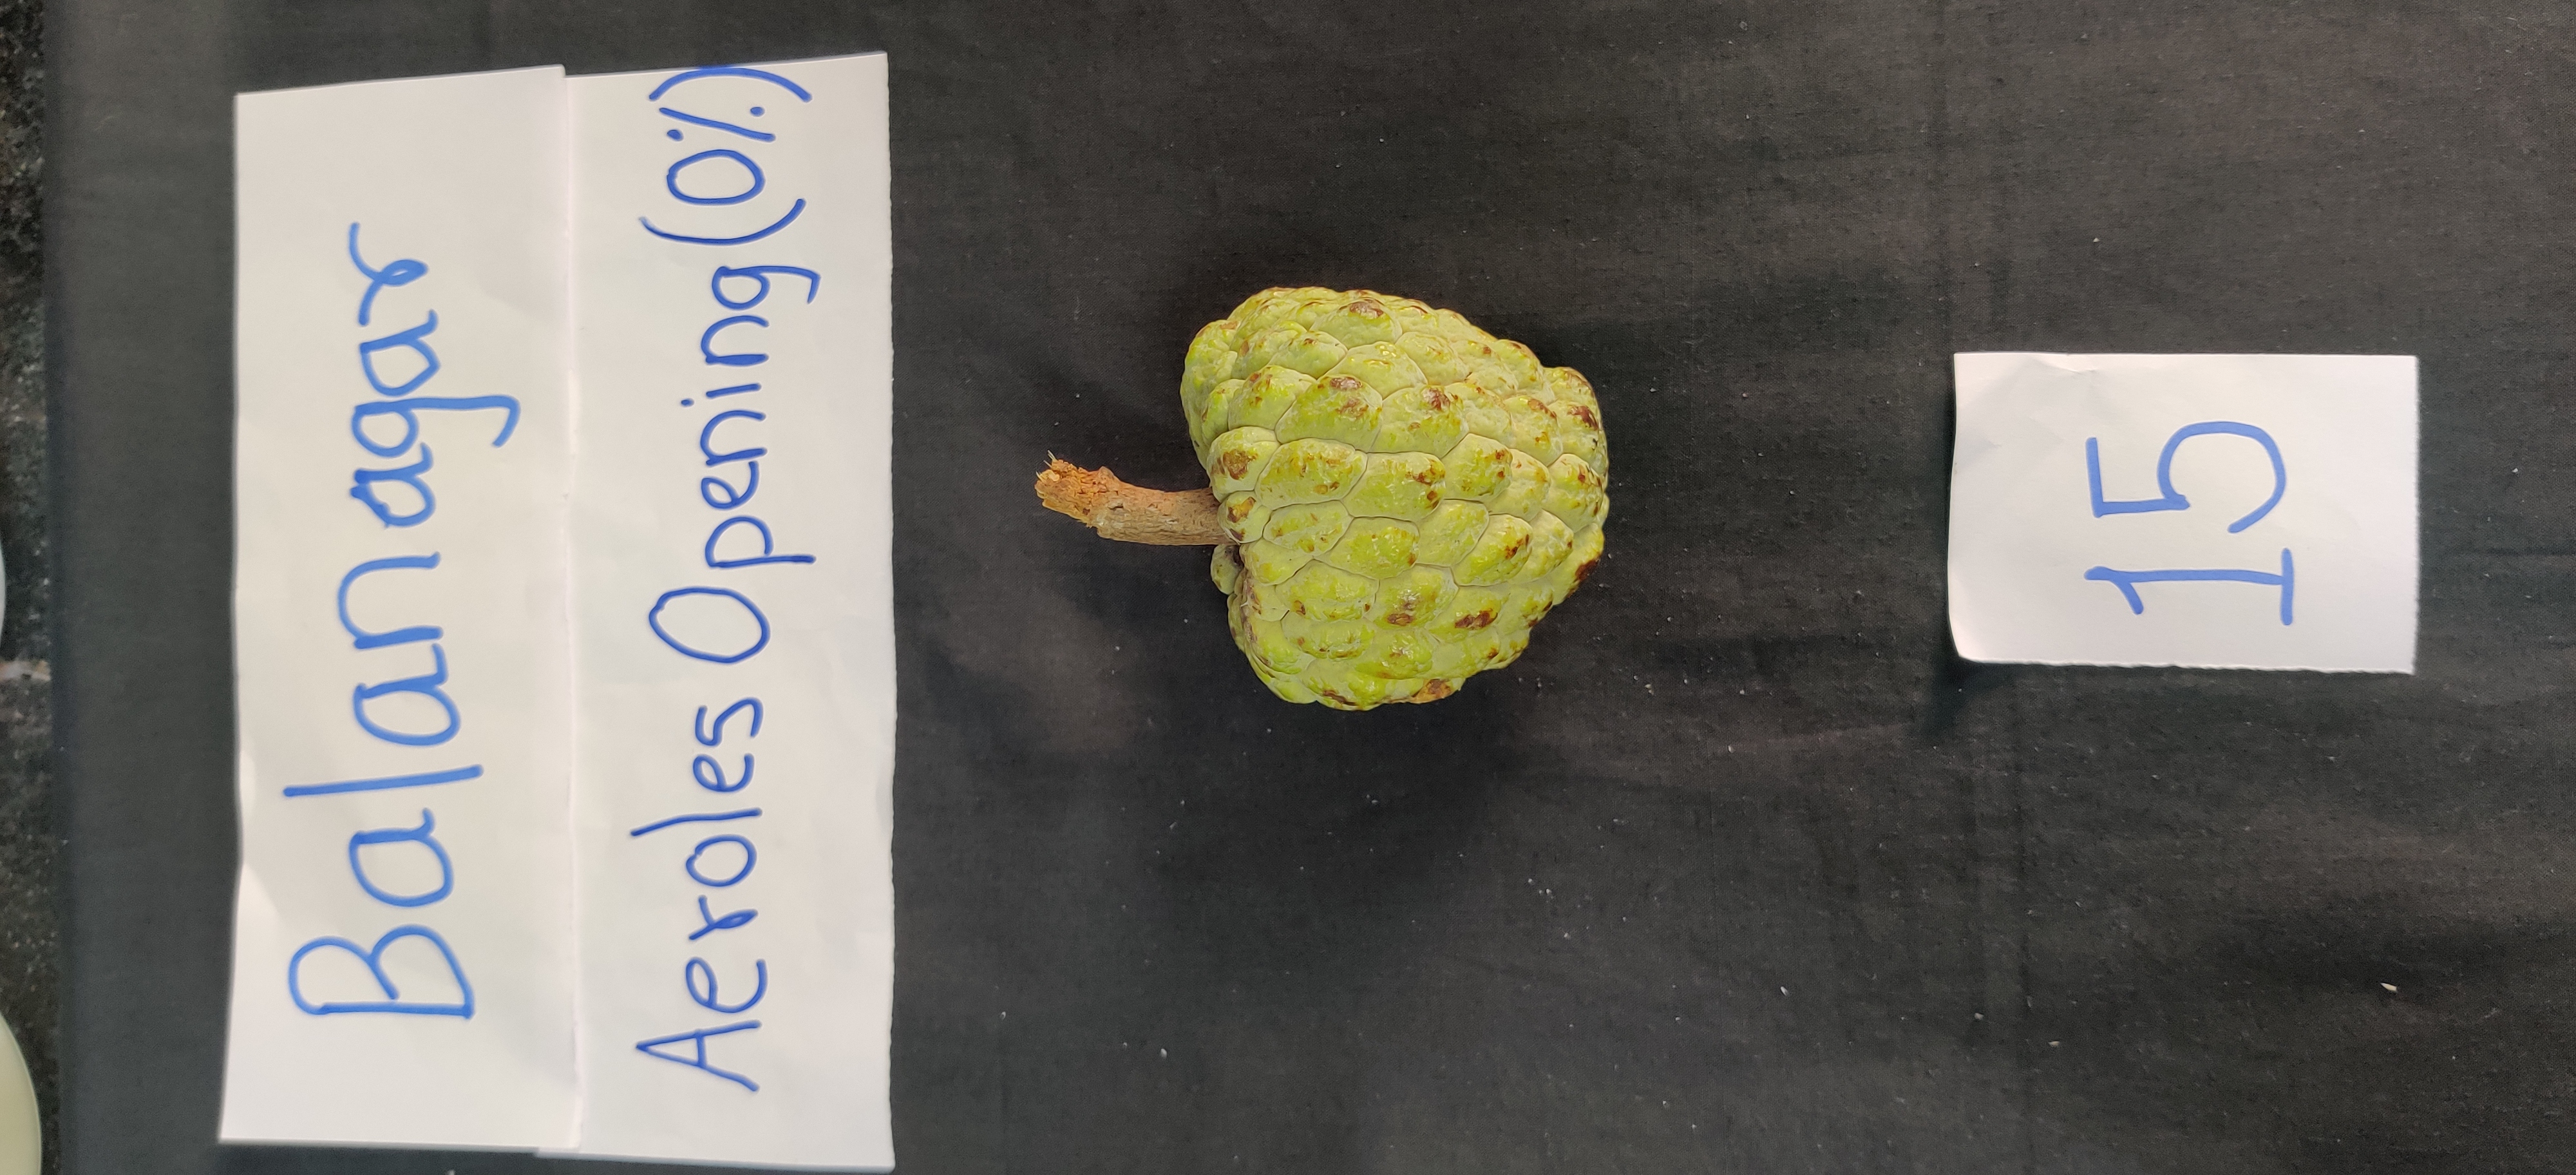 Balanagar
Aeroles Opening (0%)
15